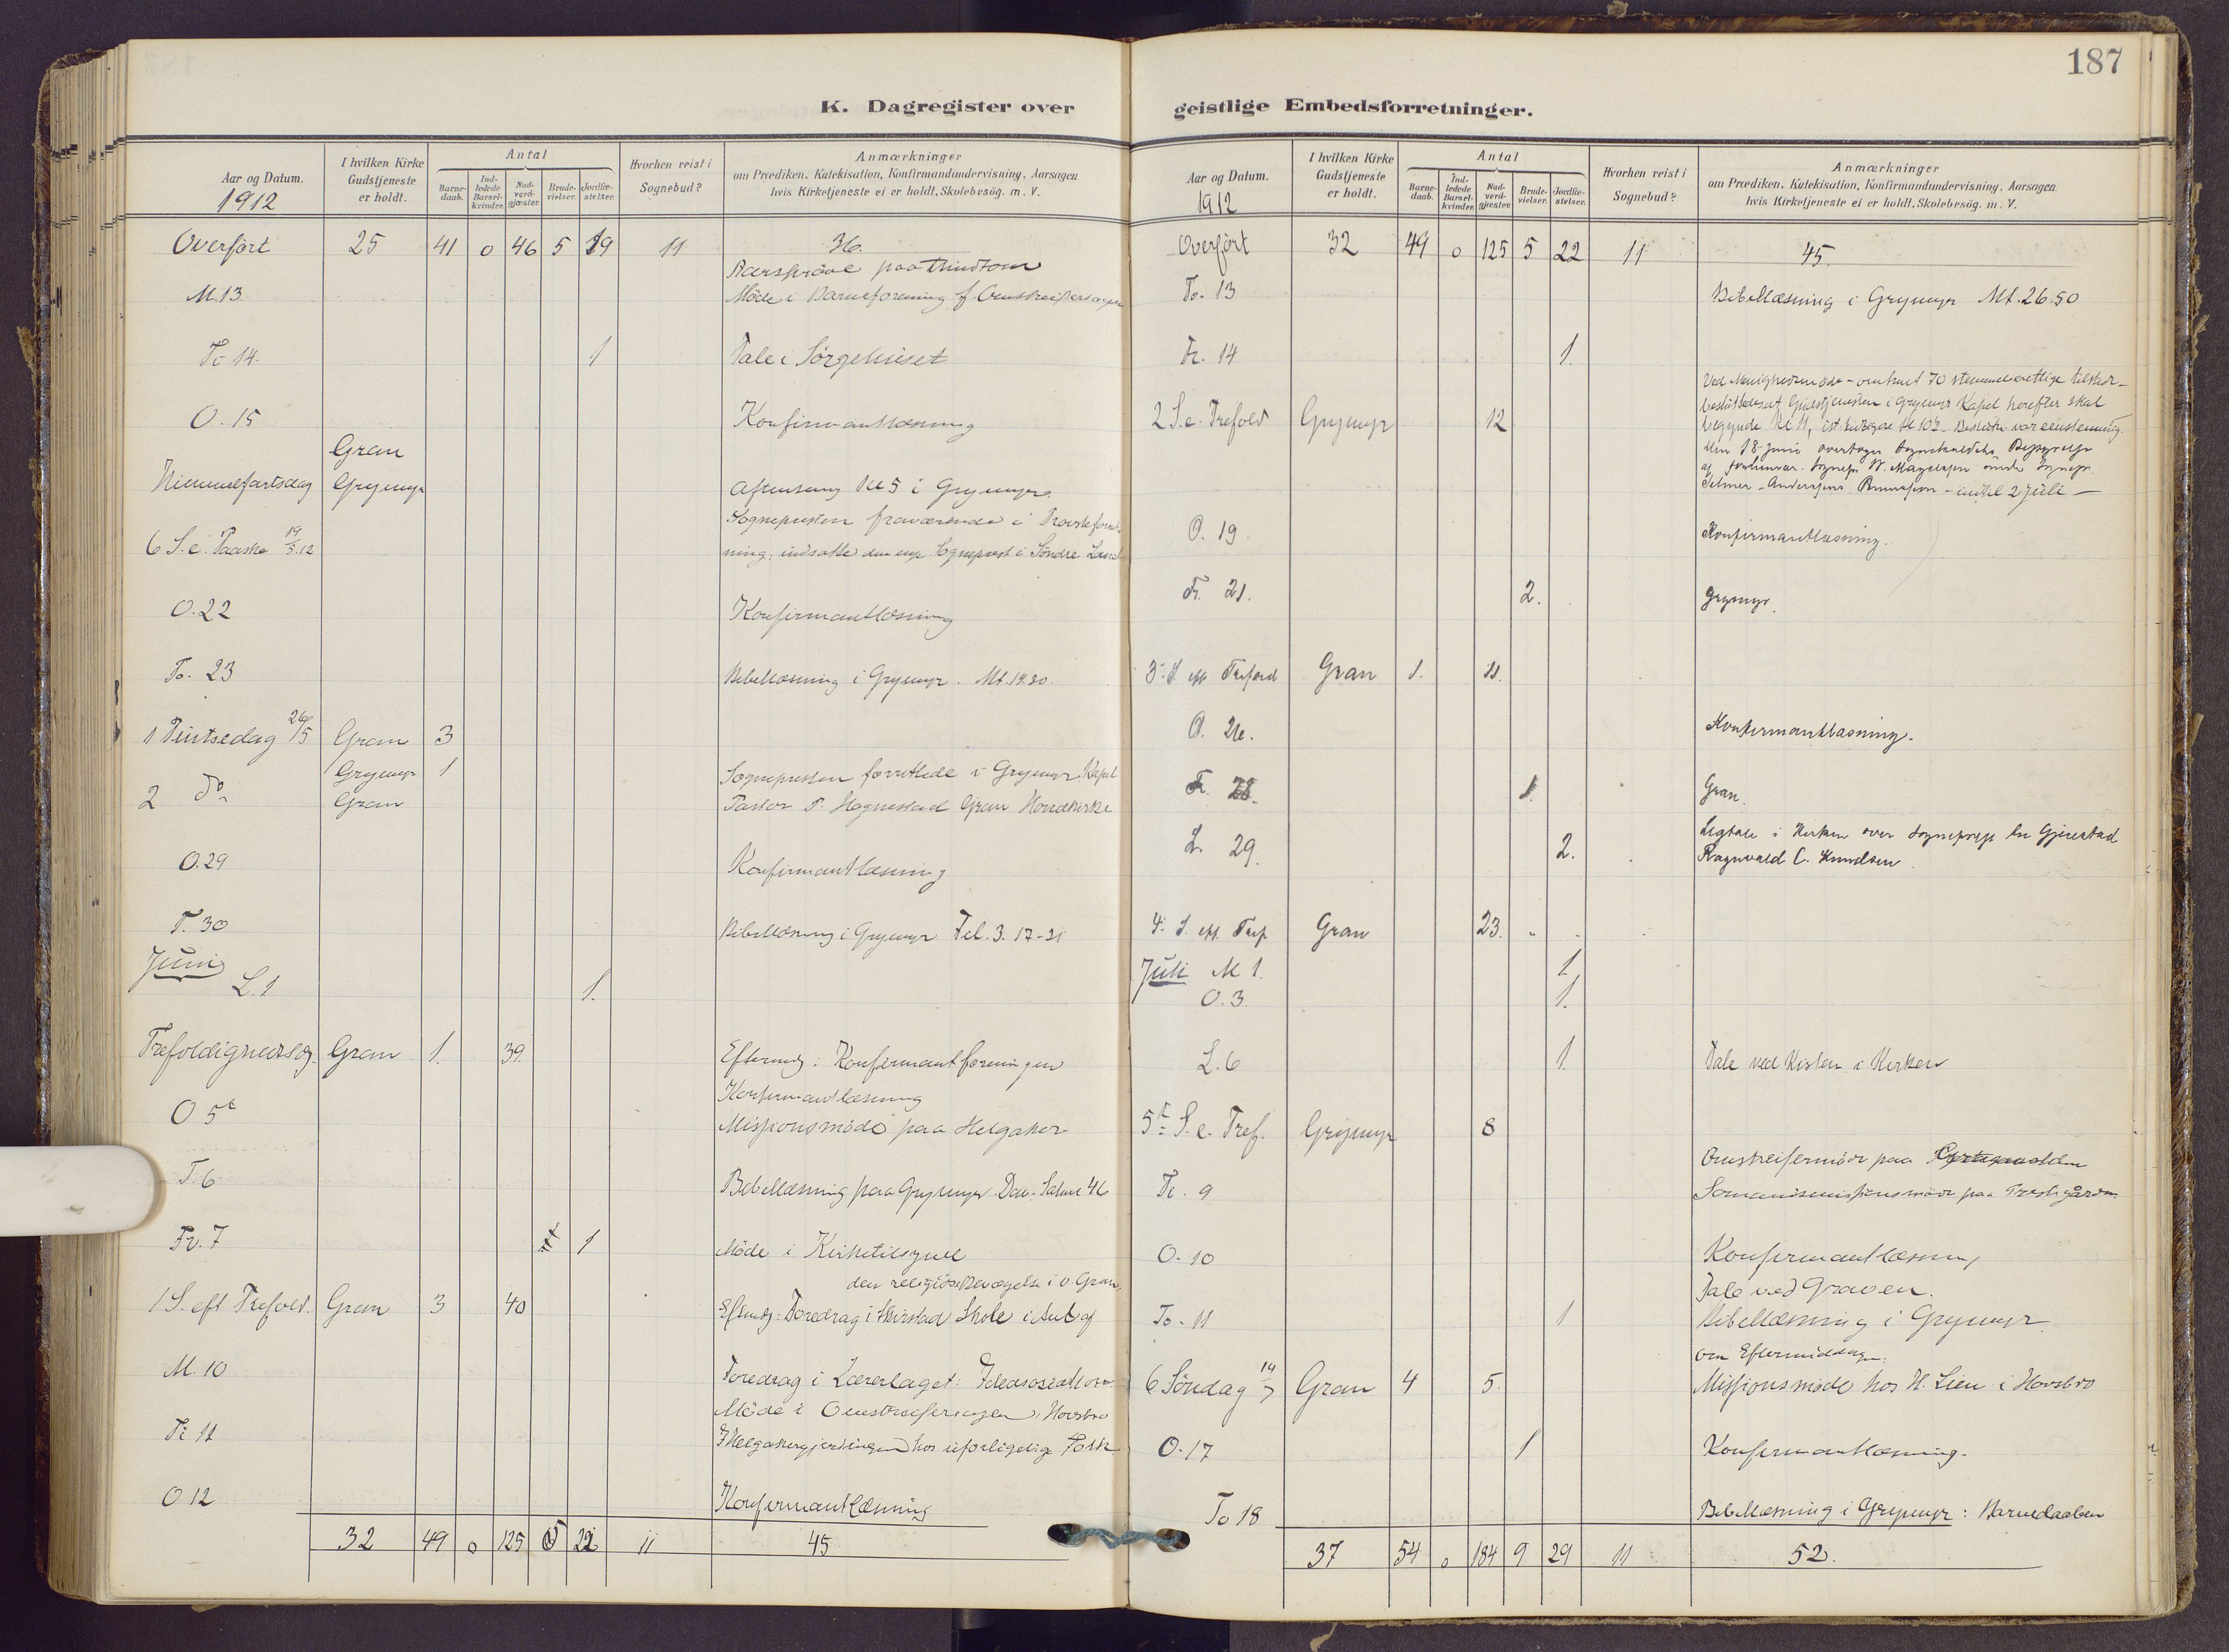 187
K. Dagregister over geistlige Embedsforretninger.
Aar og Datum.
1912
I hvilken Kirke Gudstjeneste er holdt.
Antal
Barne-daab.
Ind-ledede Barsel-kvinder.
Nad-verd-gjæster.
Brude-vielser.
Jordfæ-stelser.
Hvorhen reist i Sognebud?
Anmærkninger
om Prædiken, Katekisation, Konfirmandundervisning, Aarsagen
hvis Kirketjeneste ei er holdt. Skolebesøg. m. V.
Overført 25 41 0 46 5 19 11 36.
M. 13 Møde i Barneforening f.
Ti 14. 1 Tale i Sørgehuset
O. 15 Konfirmantlæsning
Gran
Himmelfartsdag Grymyr Aftensang Kl 5 i Grymyr
6 S. e. Paaske 19/5.12 Sognepresten fraværende i
ning: indsatte den nye Sogneprest i Søndre Land
O. 22 Konfirmantlæsning
To. 23 Bibellæsning i Grymyr. Mt. 19.30.
1 Pintsedag 26/5 Gran 3
Grymyr 1 Sognepresten forrettede i Grymyr Kapel
2 do Gran Pastor T. Hognestad Gran Hovedkirke
O. 29 Konfirmantlæsning
T. 30 Bibellæsning i Grymyr Fil. 3. 17-21
Juni
L. 1 1.
Trefoldighedssøg. Gran 1. 39. Eftermd: Konfirmantforeningen
Konfirmantlæsning
O 5te Missionsmøde paa Helgaker
T. 6 Bibellæsning paa Grymyr Dav. Salme 46
Fr. 7 1 Møde i Kirketilsynet
den religiøse Bevægelse i V. Gran
1 S. eft Trefold. Gran 3 40 Eftmdg: Foredrag i Skole i
M. 10 Foredrag i Lærerlaget:
Møde i Horsbro
Ti 11 hos uforligelige Folk
O 12 Konfirmantlæsning
32 49 0 125 5 22 11 45
Aar og Datum.
1912
I hvilken Kirke Gudstjeneste er holdt.
Antal
Barne-daab.
Ind-ledede Barsel-kvinder.
Nad-verd-gjæster.
Brude-vielser.
Jordfæ-stelser.
Hvorhen reist i Sognebud?
Anmærkninger
om Prædiken, Katekisation, Konfirmandundervisning, Aarsagen
hvis Kirketjeneste ei er holdt. Skolebesøg. m. V.
Overført 32 49 0 125 5 22 11 45.
To. 13 Bibellæsning i Grymyr Mt. 26.50
Fr. 14 1.
Ved Menighedsmøde - omtrent 70 stemmeberettige tilstede -
besluttedes at Gudstjenesten i Grymyr Kapel herefter skal
2 S. e. Trefold Grymyr 12 begynde Kl 11, ist. tidligere Kl 10½ Beslutn var eenstemmig.
den 18 Juni overtager
af
Selmer - - indtil 2 Juli -
O. 19. Konfirmantlæsning.
Fr. 21. 2. Grymyr.
3. S. eft Trefold Gran 1. 11.
O. 26. Konfirmantlæsning.
Fr. 28. 1. Gran.
Ligtale i Kirken over
L. 29. 2. Ragnvald C. Knudsen.
4. S. eft. Tref Gran 23.
Juli M 1. 1.
O. 3. 1.
L. 6 1. Tale ved Kisten i Kirken
5te S. e. Tref. Grymyr 8
Omstreifermøde paa
Ti. 9 paa Prestegården
O. 10 Konfirmantlæsning
Tale ved Graven.
To. 11 1 Bibellæsning i Grymyr
om Eftermiddagen:
6 Søndag 14/7 Gran 4 5. Missionsmøde hos H. Lien i Horsbro
O. 17 1 Konfirmantlæsning.
To 18 Bibellæsning i Grymyr: Barnedaaben
37 54 0 184 9 29 11 52.